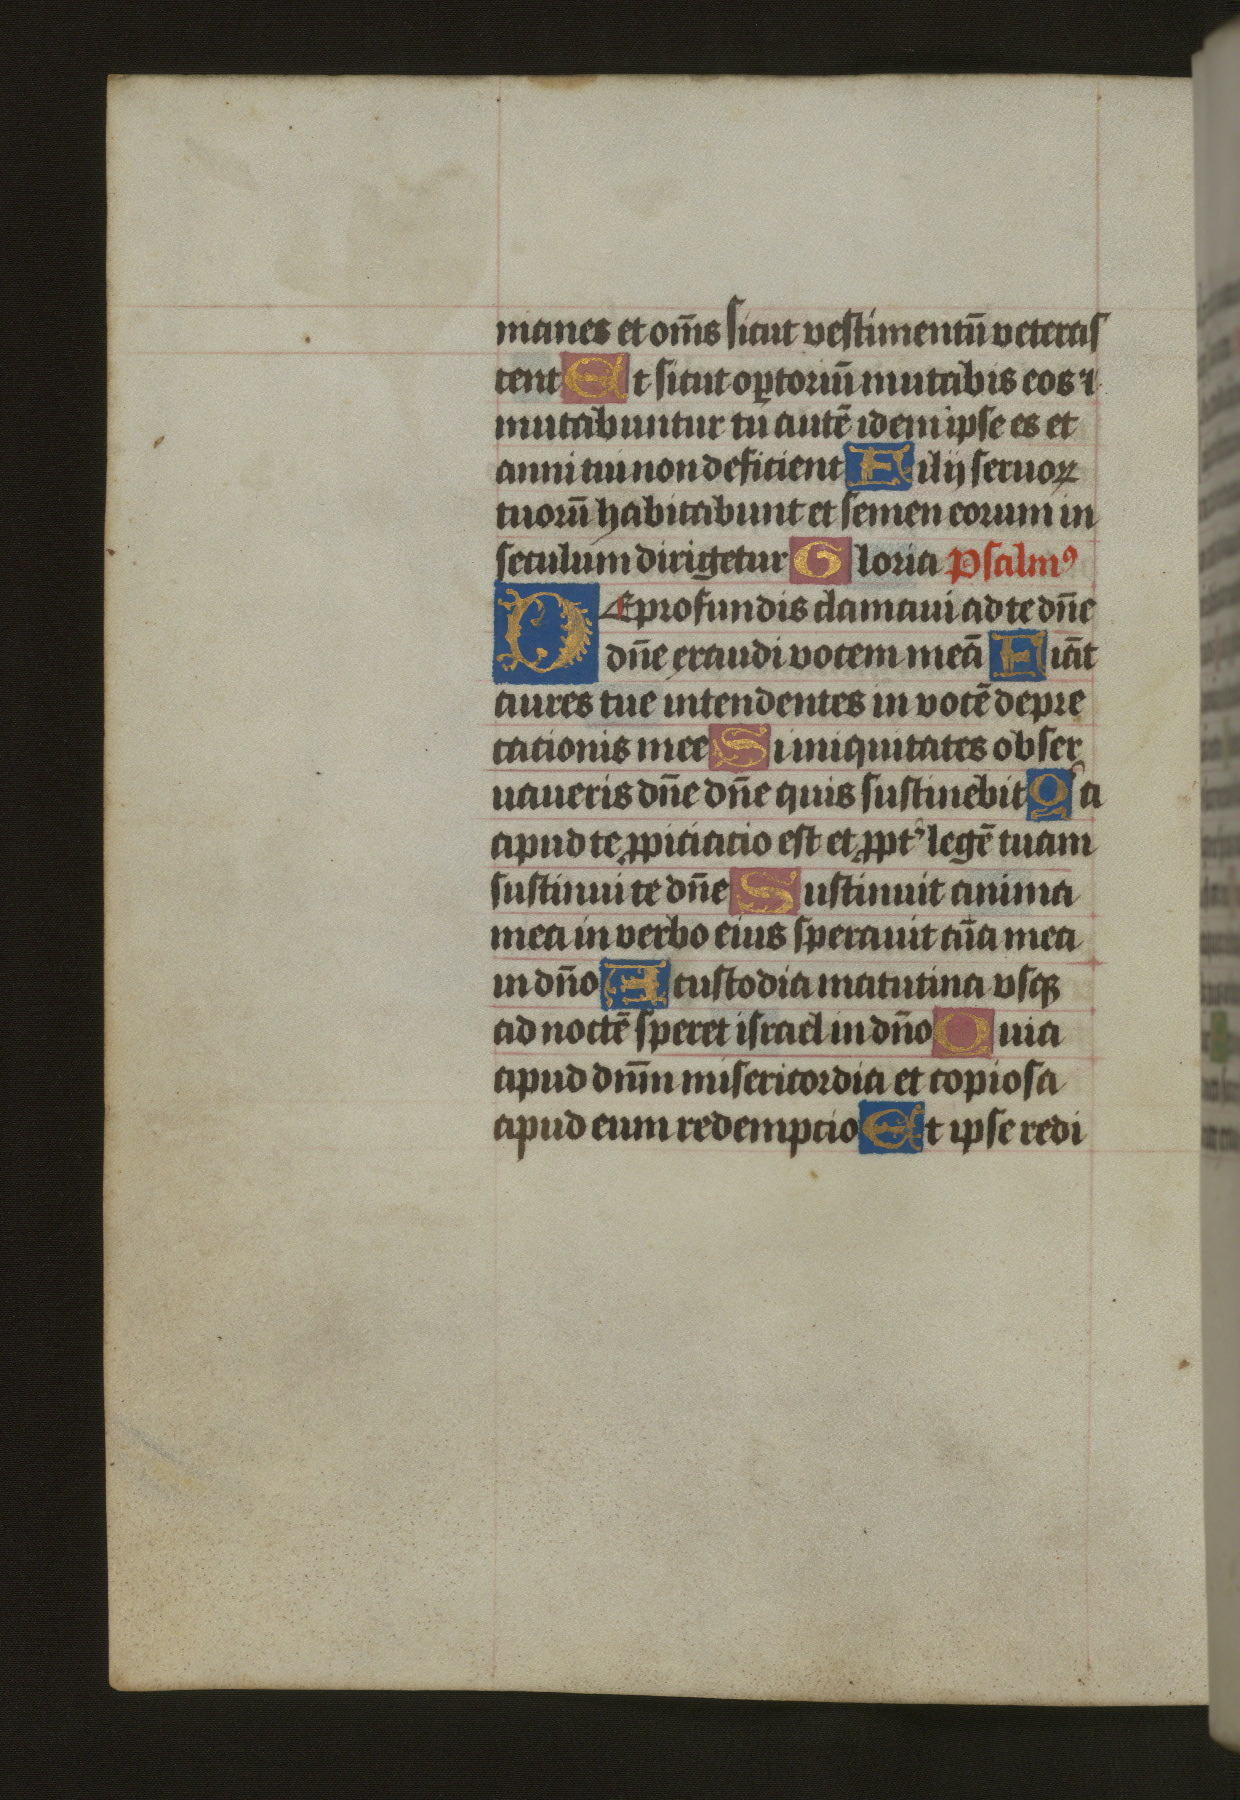 manes et om̄s sicut vestimentū veteras
cent Et sicut op̱toriū mutabis eos ⁊
mutabuntur tu autē idem ipse es et
anni tui non deficient Filij seruoꝝ
tuorū habitabunt et semen eorum in
seculum dirigetur Gloria Psalmꝰ
DE profundis clamaui ad te dn̄e
dn̄e exaudi vocem meā Fiāt
aures tue intendentes in vocē depre
cationis mee Si iniquitates obser
uaueris dn̄e dn̄e quis sustinebit Qͥa
apud te ꝓpiciacio est et ꝓpt᾿ legē tuam
sustinui te dn̄e Sustinuit anima
mea in verbo eius sperauit aīa mea
in dn̄o A custodia matutina vsqꝫ
ad noctē speret israel in dn̄o Quia
apud dn̄m misericordia et copiosa
apud eum redempcio Et ipse redi